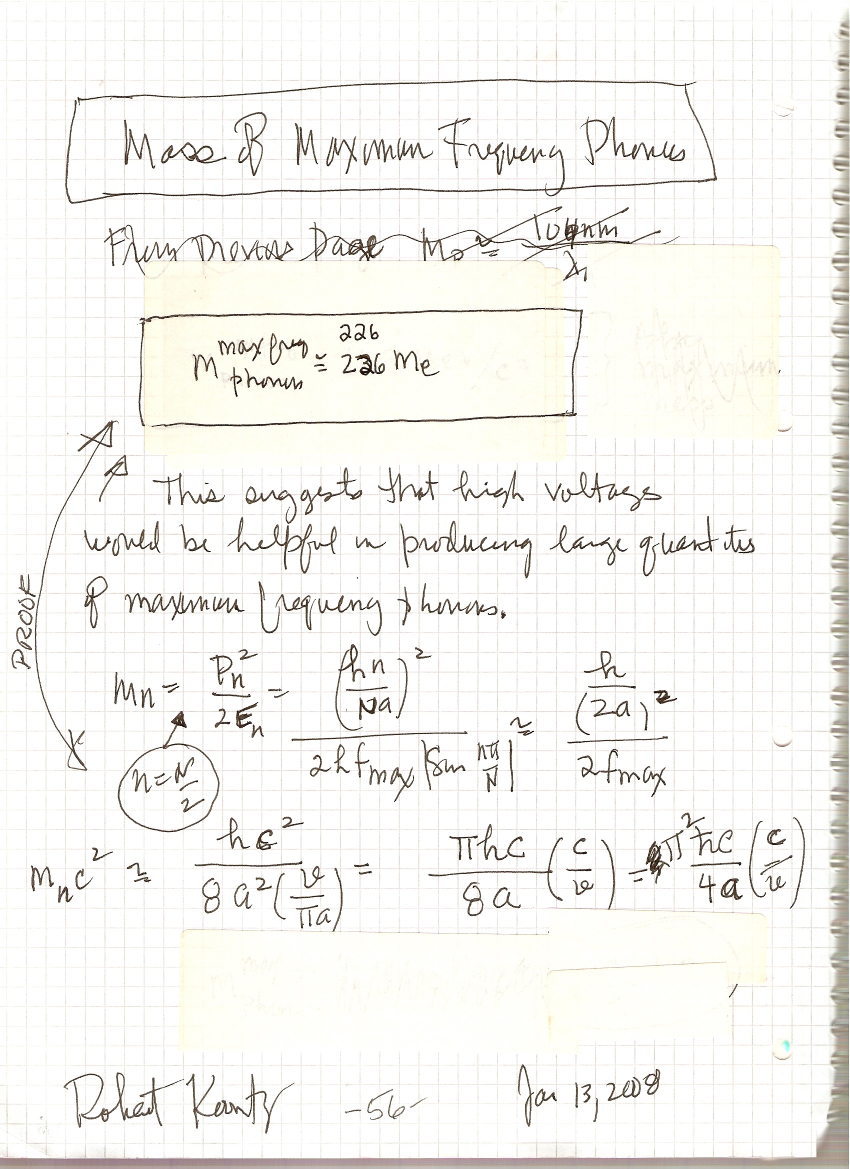 Mass of Maximum Frequency Phonons
From previous page M₀ ≅ 104nm / λ₁
226
m phonons max freq ≅ 226 me
This suggests that high voltages
would be helpful in producing large quantities
of maximum frequency phonons.
PROOF
mn = Pn² / 2En = (hn / Na)² / 2hfmax |Sin nπ/N| ≅ h / (2a)² / 2fmax
n = N/2
mnc² ≅ hc² / 8a²(v/πa) = πhc / 8a (c/v) = π²ħc / 4a (c/v)
Robert Kountz -56- Jan 13, 2008